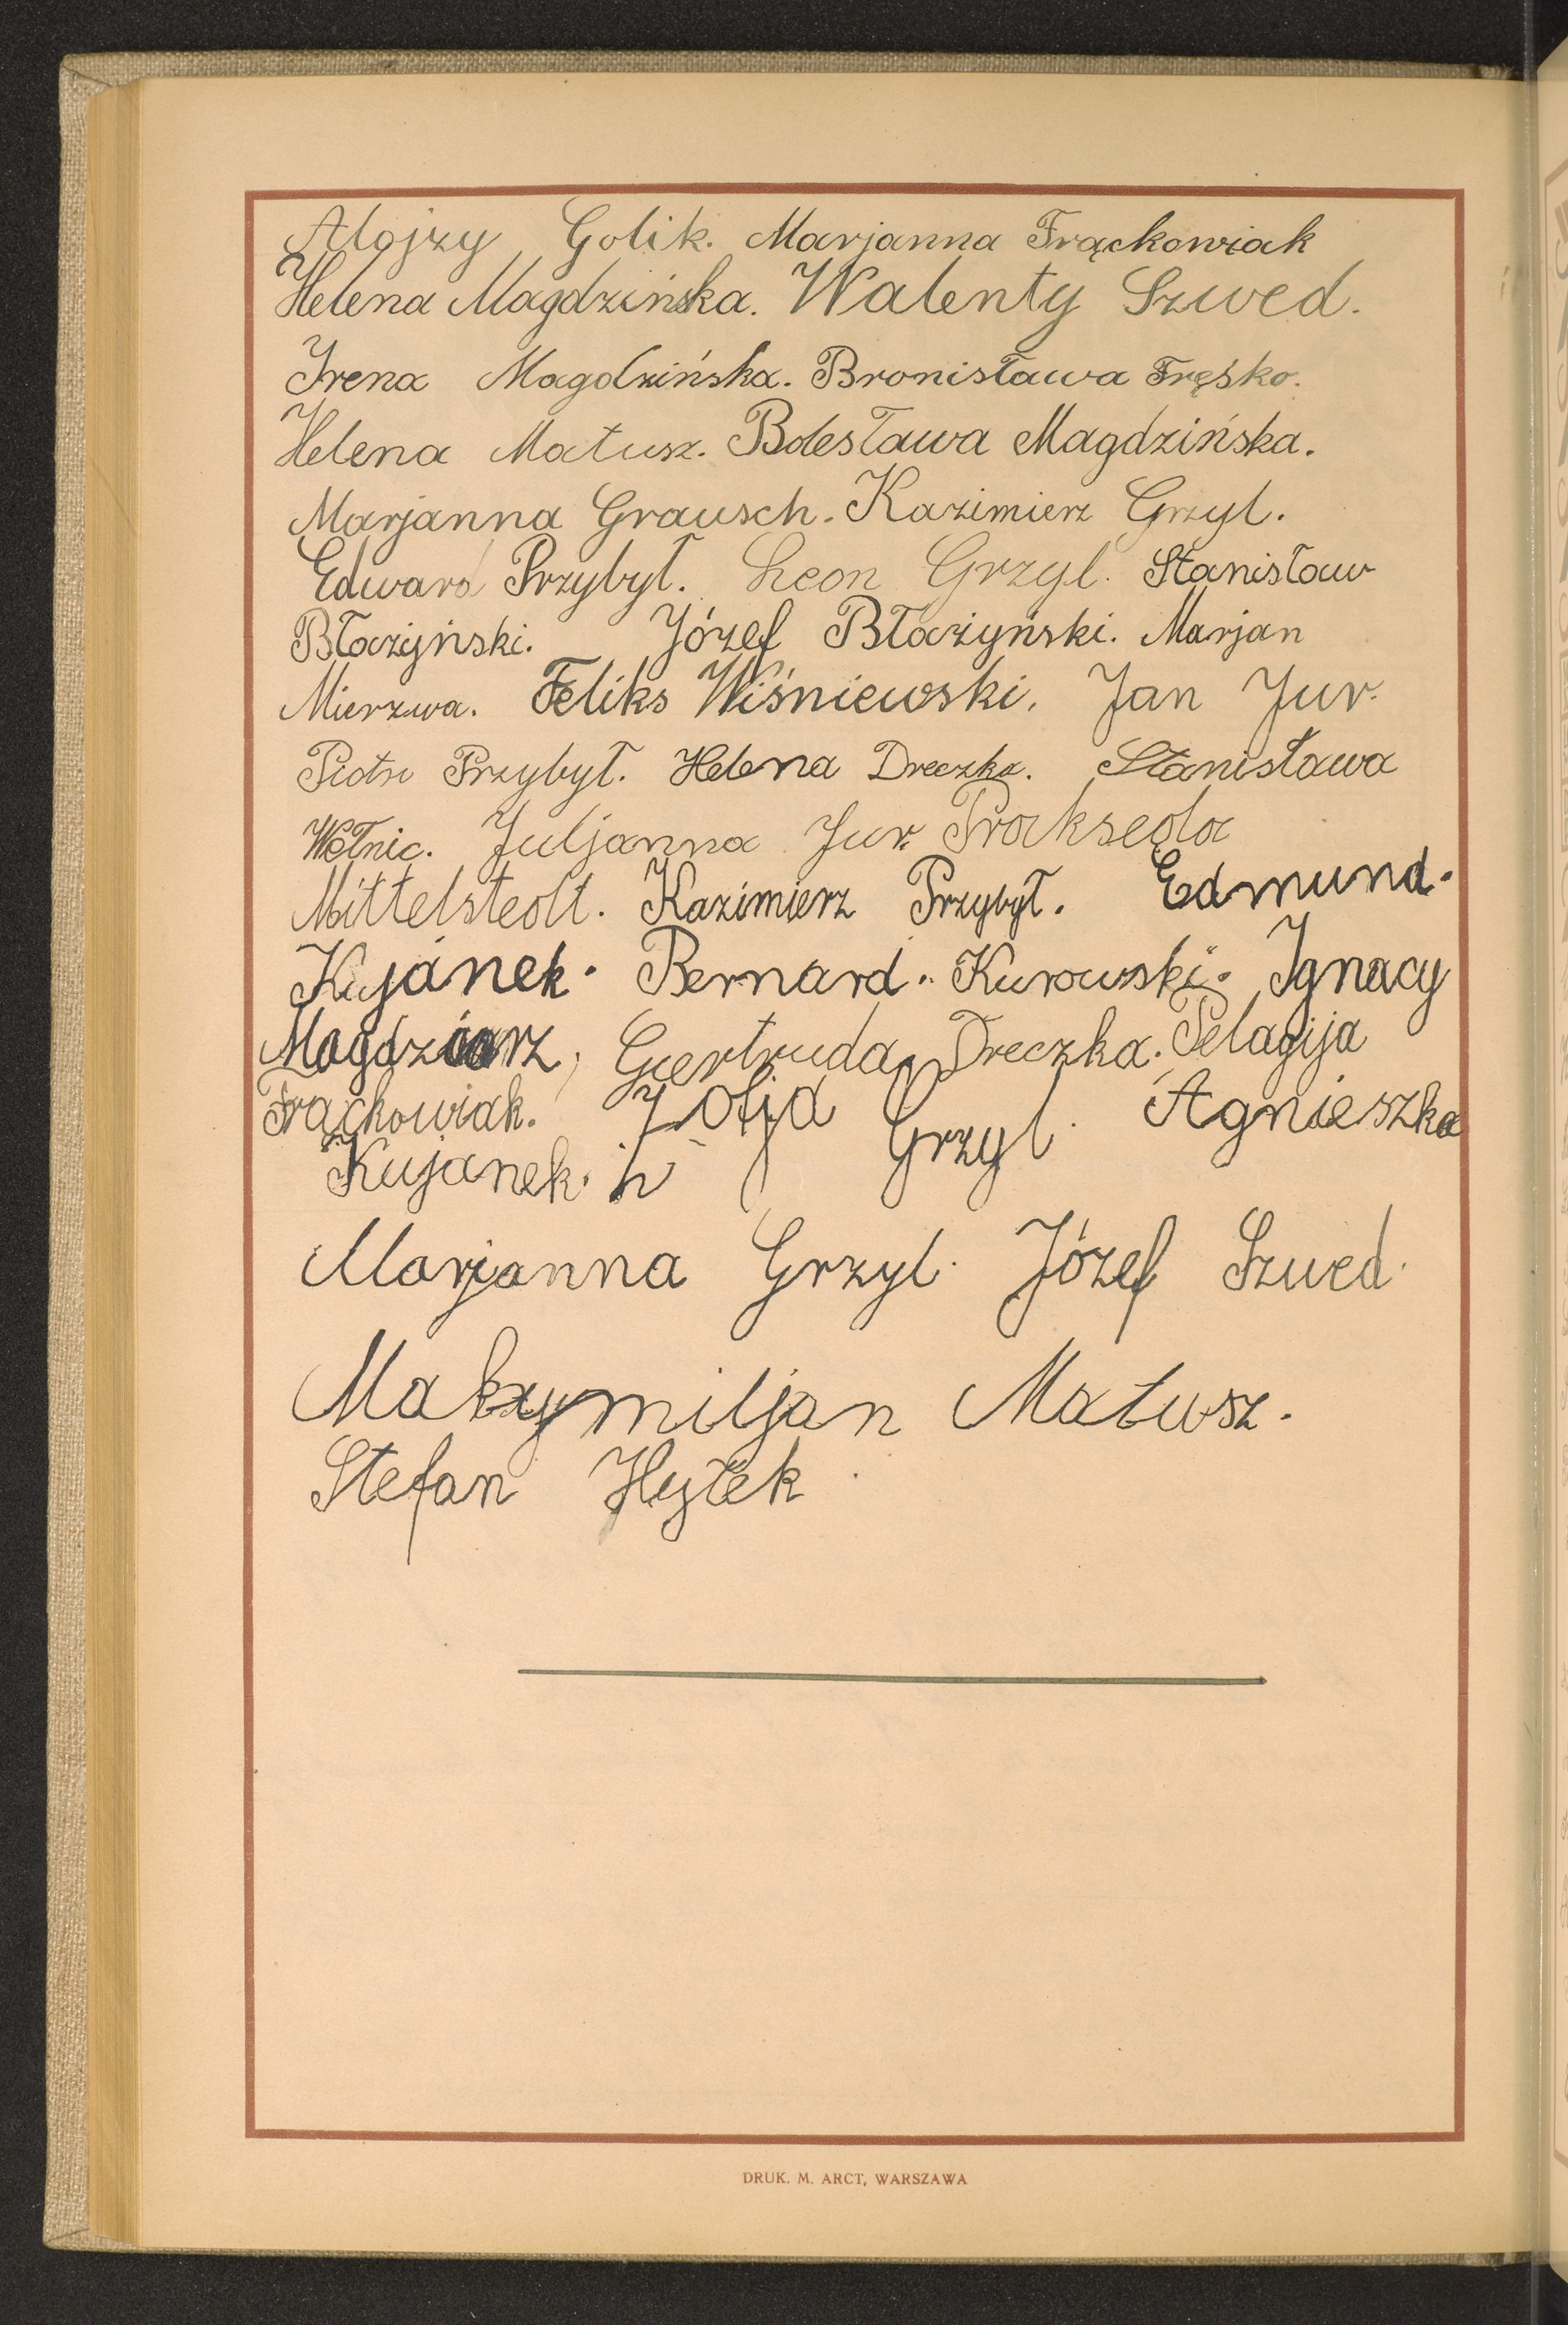 Alojzy Golik. Marjanna Frąckowiak
Helena Magdzińska. Walenty Szwed.
Irena Magdzińska. Bronisława Fręśko.
Helena Matusz. Bolesława Magdzińska.
Marjanna Grausch. Kazimierz Grzyl.
Edward Przybył. Leon Grzyl. Stanisław
Błażyński. Józef Błażyński. Marjan
Mierzwa. Feliks Wiśniewski. Jan Jur.
Piotr Przybył. Helena Dreczka. Stanisława
Juljanna Jur. Prakseda
Mittelstedt. Kazimierz Przybył. Edmund.
Kujanek. Bernard. Kurowski. Ignacy
Magdziarz, Giertruda Dreczka. Pelagija
Frąckowiak. Zofja Grzyl. Agnieszka
Kujanek.
Marjanna Grzyl. Józef Szwed.
Maksymiljan Matusz.
Stefan Hyżek.
DRUK. M. ARCT, WARSZAWA